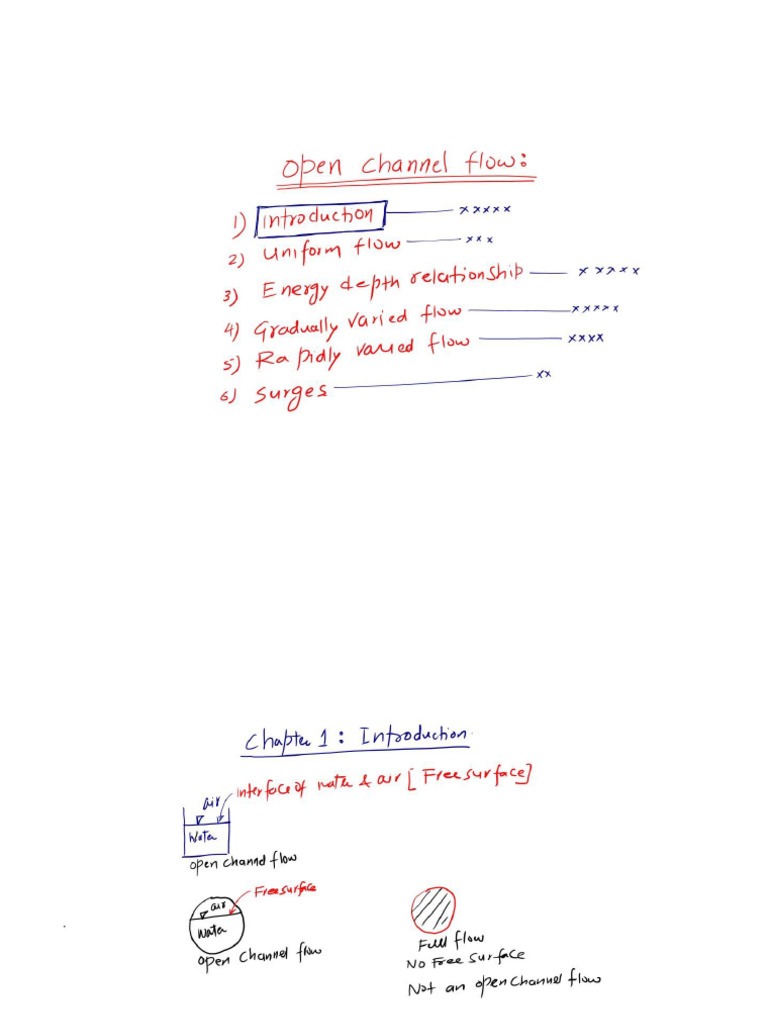 Open channel flow:
1) introduction xxxxx
2) uniform flow xxx
3) Energy depth relationship xxxxx
4) Gradually varied flow xxxxx
5) Rapidly varied flow xxxx
6) surges xx
Chapter 1 : Introduction
interface of water & air [Free surface]
air
water
open channel flow
Free surface
air
water
open channel flow
Full flow
No Free surface
Not an open channel flow